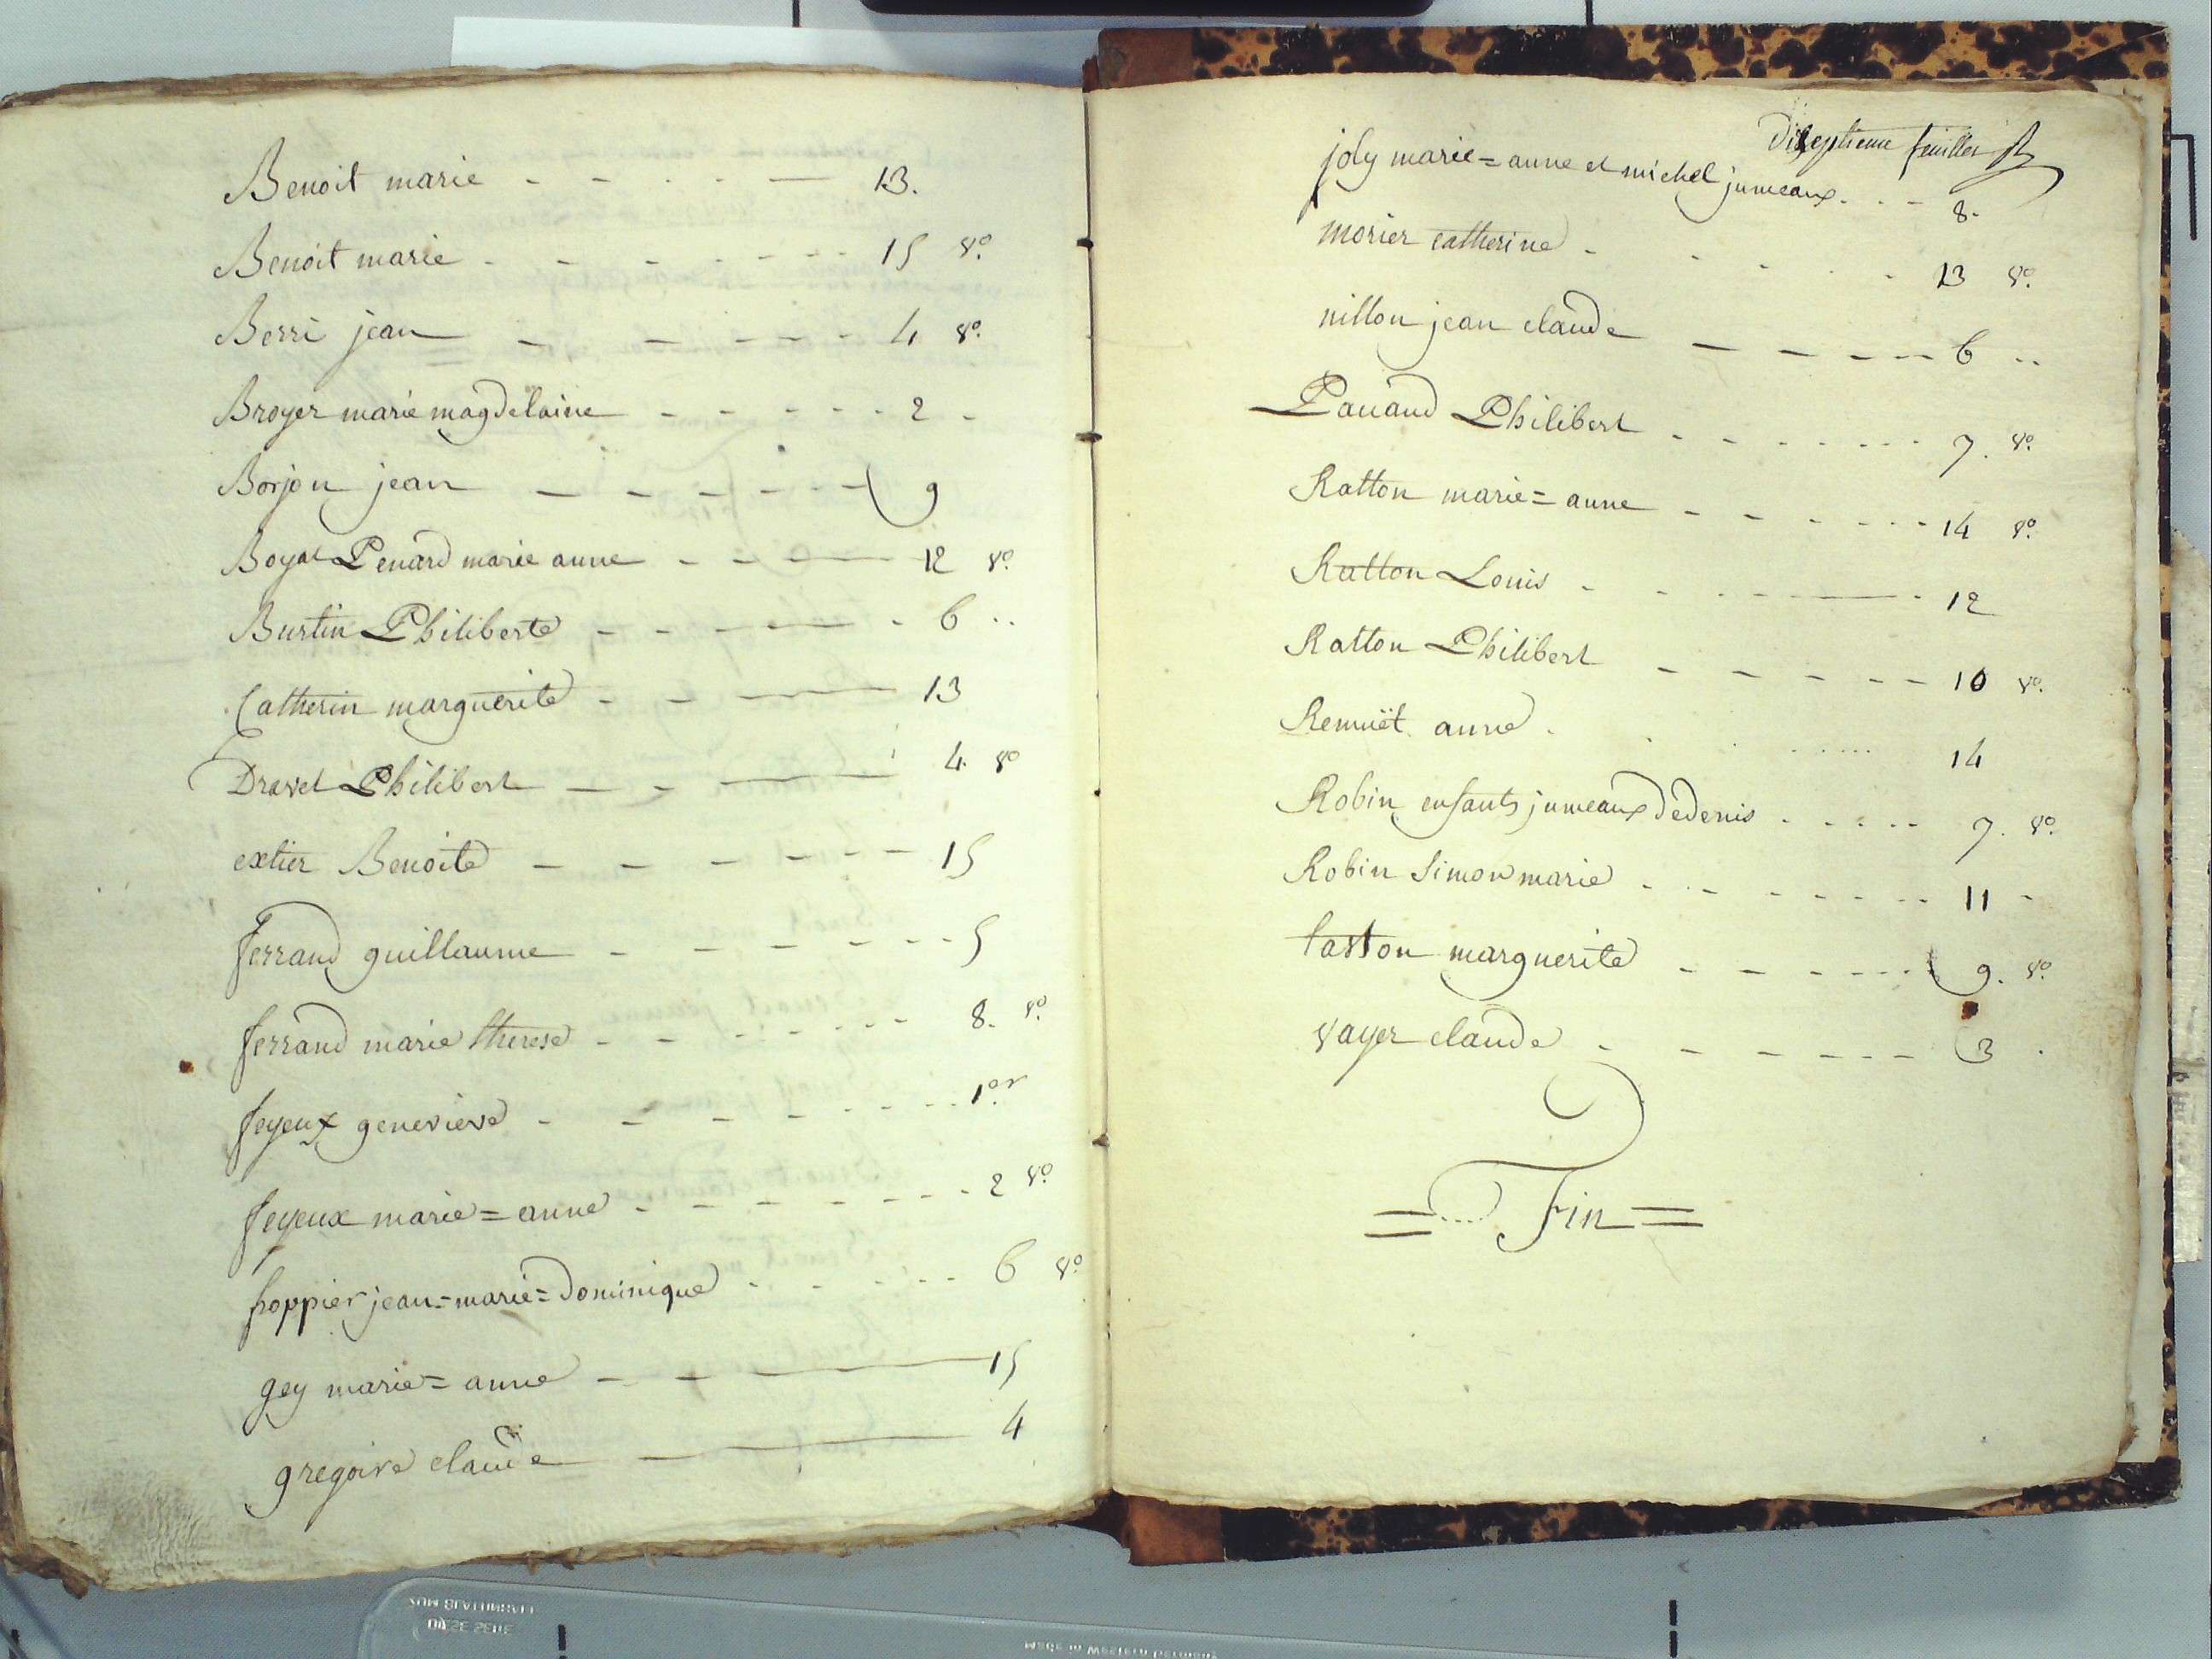 Benoit marie - - - - — 13.
Benoit marie - - - - - - - 15 vº.
Berri jean - - - - - - 4 vº.
Broyer marie magdelaine - - - - - 2 -
Borjon jean - - - - - - 9
Boyat Penard marie anne - - - — 12 vº.
Burtin Philiberte - - - — - 6 ..
Catherin marguerite - - — 13
Dravet Philibert - - — 4. vº
extier Benoite - - - - - - 15
ferrand guillaume - - - - - - - 5
ferrand marie therese - - - - - - 8. vº.
feyeux genevieve - - - - - - - 1er
feyeux marie=anne - - - - - - - 2 vº.
foppier jean=marie=dominique - - - - - 6 vº
gey marie=anne - - — 15
gregoire claude — 4
diseptieme feuillet
joly marie=anne et michel jumeaux. . . - 8.
morier catherine - - - - - - 13 vº.
nillon jean claude - - - - - 6 ..
Pauaud Philibert - - - - - - - 7. vº.
Ratton marie=anne - - - - - - 14 vº.
Ratton Louis - - - — - 12
Ratton Philibert - - - - - - 10 vº.
Remuët anne . . . ..... 14
Robin enfants jumeaux de denis . - - - - 7. vº.
Robin Simon marie - - - - - - - 11 -
taston marguerite - - - - - - 9. vº.
vayer claude - - - - - - 3 .
= .... Fin =
Made in Western Germany